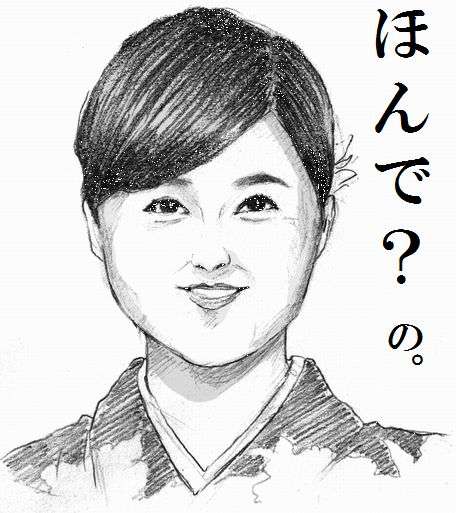 ほんで？の。